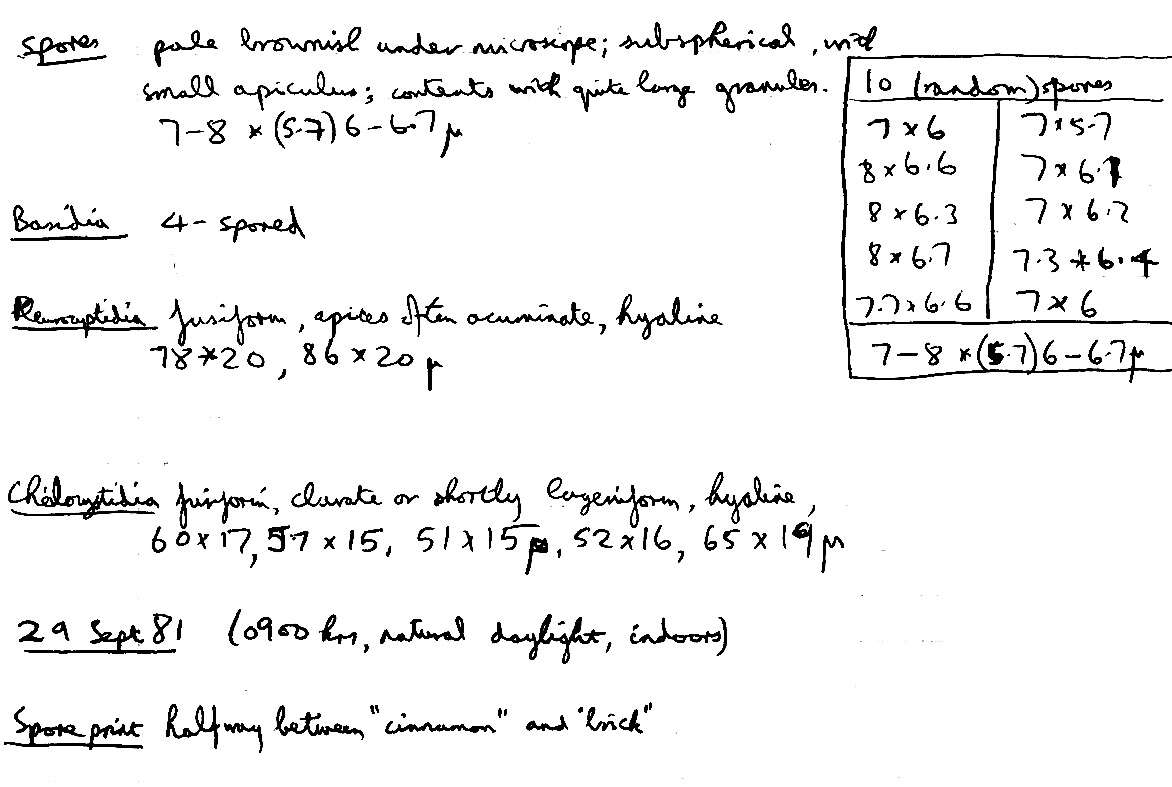 Spores pale brownish under microscope; subspherical, with
small apiculus; contents with quite large granules.
7-8 × (5.7) 6-6.7 μ
10 (random) spores
7 × 6 7 × 5.7
8 × 6.6 7 × 6.1
8 × 6.3 7 × 6.2
8 × 6.7 7.3 × 6.4
7.7 × 6.6 7 × 6
7-8 × (5.7) 6-6.7 μ
Basidia 4-spored
Pleurocystidia fusiform, apices often acuminate, hyaline
78 × 20, 86 × 20 μ
Cheilocystidia fusiform, clavate or shortly lageniform, hyaline,
60 × 17, 57 × 15, 51 × 15 μ, 52 × 16, 65 × 19 μ
29 Sept 81 (0900 hrs, natural daylight, indoors)
Spore print halfway between "cinnamon" and "brick"